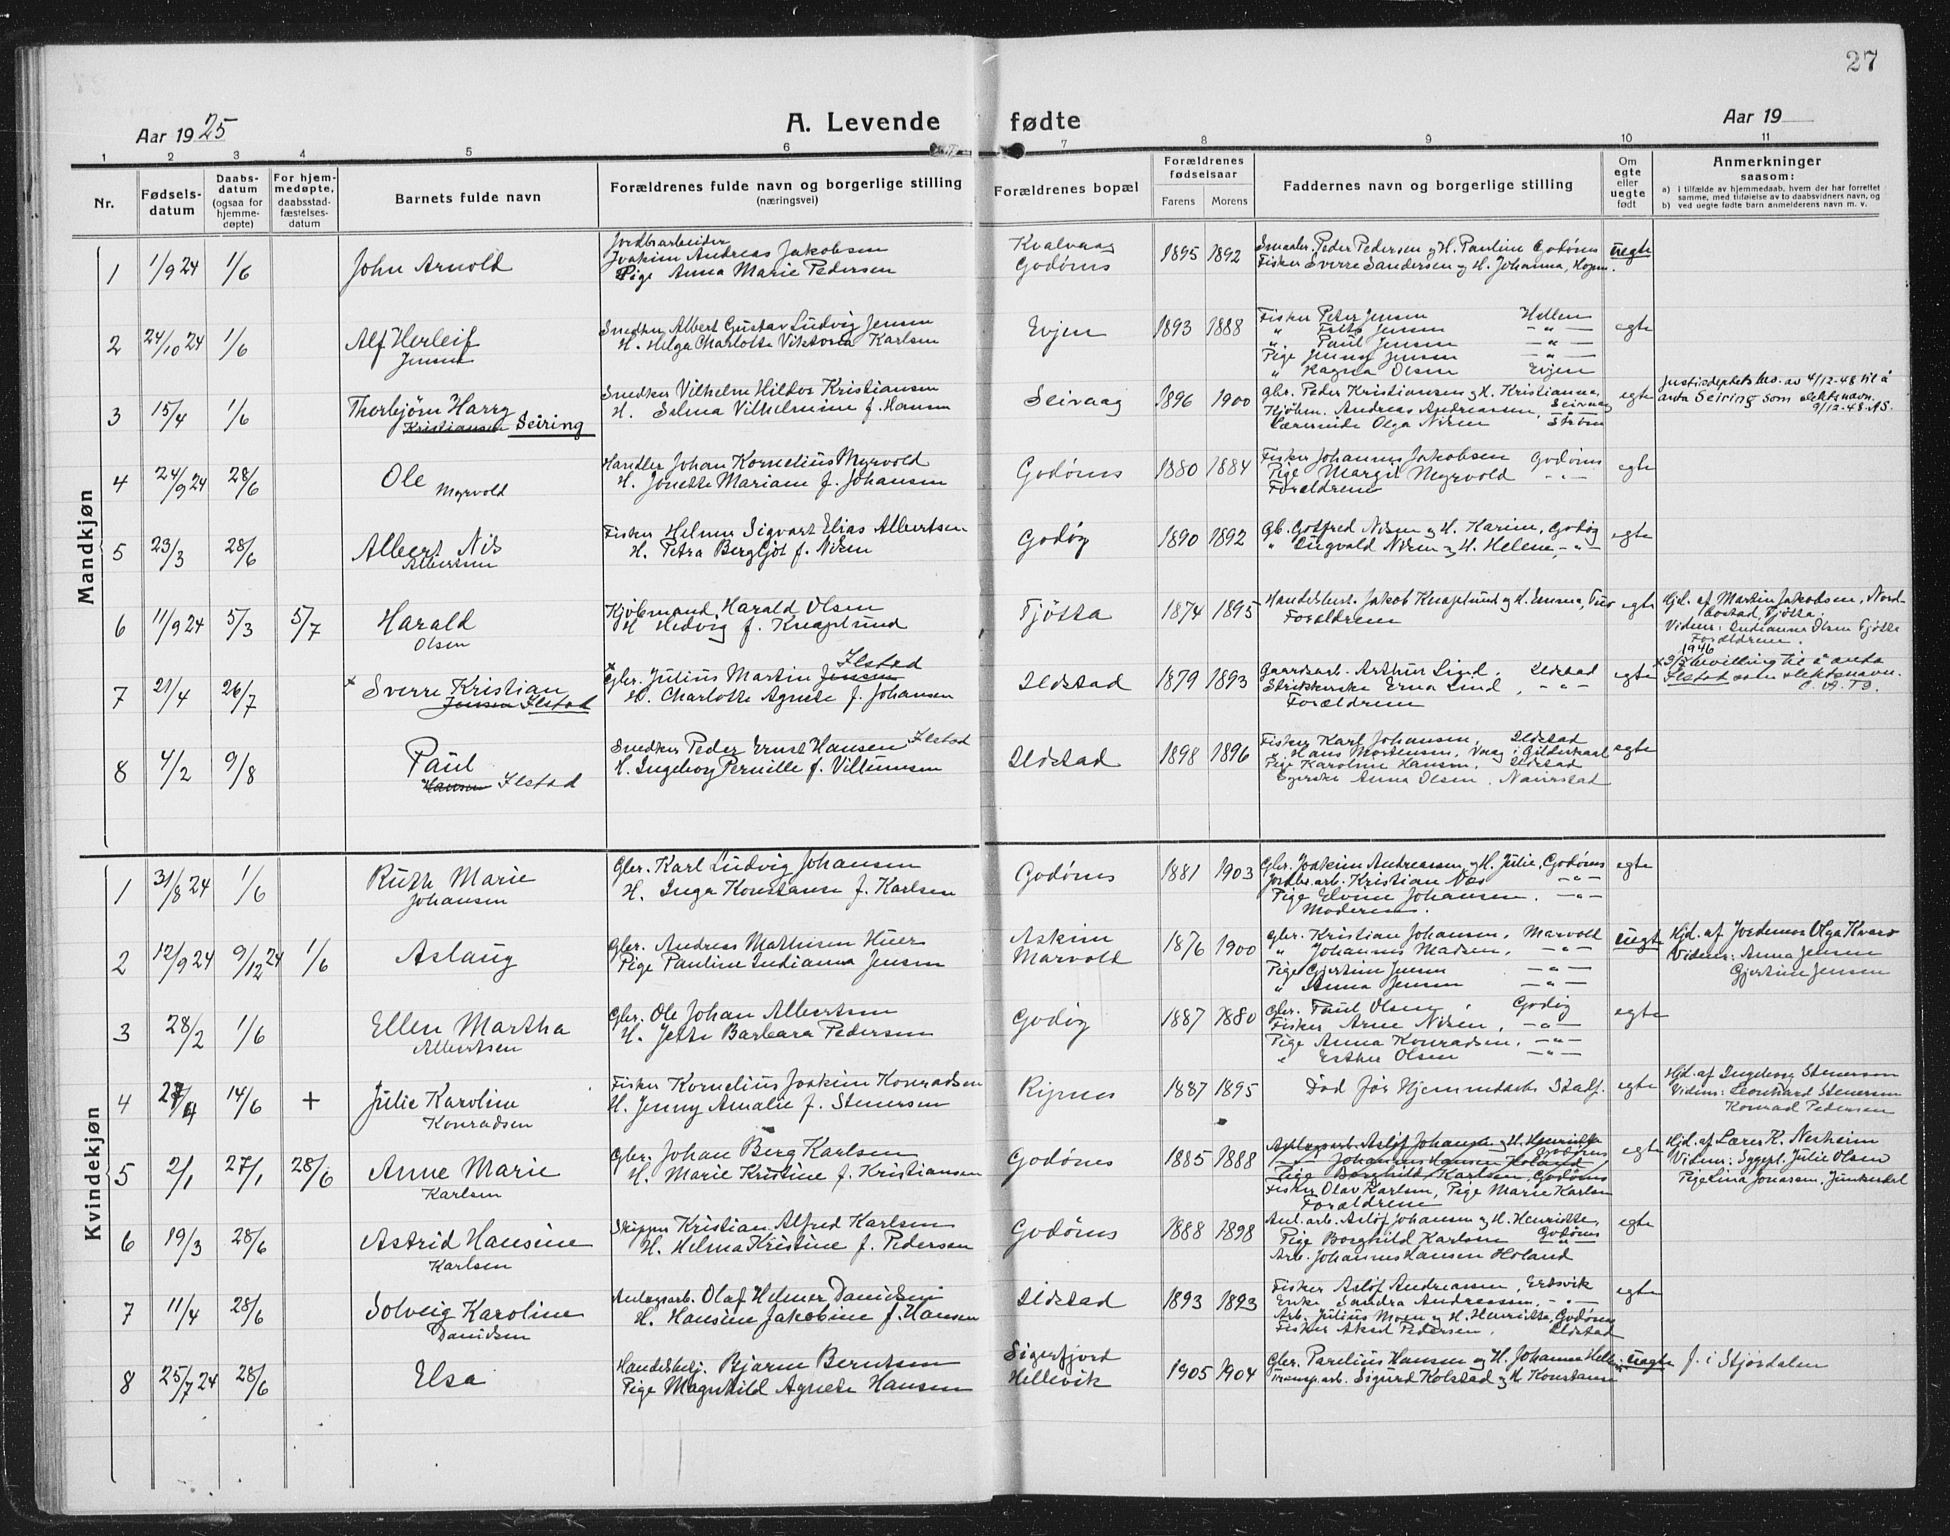 27
Aar 1925
A. Levende fødte
Aar 19
1 2 3 4 5 6 7 8 9 10 11
Nr.
Fødsels-
datum
Daabs-
datum
(ogsaa for
hjemme-
døpte)
For hjem-
medøpte,
daabsstad-
fæstelses-
datum
Barnets fulde navn
Forældrenes fulde navn og borgerlige stilling
(næringsvei)
Forældrenes bopæl
Forældrenes
fødselsaar
Farens Morens
Faddernes navn og borgerlige stilling
Om
egte
eller
uegte
født
Anmerkninger
saasom:
a) i tilfælde av hjemmedaab, hvem der har forrettet
samme, med tilføielse av to daabsvidners navn, og
b) ved uegte fødte barn anmelderens navn m. v.
Mandkjøn
1 1/9 24 1/6 John Arnold
Jordbrarbeider
Joakim Andreas Jakobsen
Pige Anna Marie Pedersen
Kvalvaag
Godønes
1895 1892
Peder Pedersen og H. Pauline Godønes
Fisker Sverre Sandersen og H. Johanna,
uegte
2 24/10 24 1/6 Alf Herleif
Jensen
Snedker Albert Gustav Ludvig Jensen
H. Helga Charlotte Viktoria Karlsen
Evjen
1893 1888
Fisker Peter Jensen Hellen
" Jensen — " —
" Paul Jensen — " —
Pige Jenny Jensen — " —
" Ragna Olsen Evjen
egte
3 15/4 1/6 Thorbjørn Harry
Kristiansen Seiring
Snedker Vilhelm Hildor Kristiansen
H. Selma Vilhelmine f. Hansen
Seivaag
1896 1900
Gbr. Peder Kristiansen og H. Kristianna,
Kjøbm. Andreas Andreassen, Seivaag
Lærerinde Olga Nilsen, Strøm
egte
Justisdeptets bev. av 4/12-48 til å
anta Seiring som slektsnavn.
9/12-48 AS.
4 24/9 24 28/6 Ole
Myrvold
Handler Johan Kornelius Myrvold
H. Jonette Mariane f. Johansen
Godønes
1880 1884
Fisker Johannes Jakobsen Godønes
Pige Margit Myrvold — " —
Forældrene
egte
5 23/3 28/6 Albert Nis
Albertsen
Fisker Helmer Sigvart Elias Albertsen
H. Petra Bergljot f. Nilsen
Godøy
1890 1892
Gb. Gotfred Nilsen og H. Harine, Godøy
" Nilsen og H. Helene, — " —
egte
6 11/9 24 5/3 5/7 Harald
Olsen
Kjøbmand Harald Olsen
H. Hedvig f. Knaplund
Tjøtta
1874 1895
Jakob Knaplund og H. Emma,
Forældrene
egte
Hjd. af Martin Jakobsen, Nord-
Tjøtta.
Vidner: Indianna Olsen Tjøtta
Forældrene.
7 21/4 26/7 × Sverre Kristian
Jensen Ilstad
× Gbr. Julius Martin Jensen Ilstad
H. Charlotte Agnete f. Johansen
Ildstad
1879 1893
Gaardsarb. Arthur Lind, Ildstad
Strikkerske Erna Lind, — " —
Forældrene
egte
1946
× bevilling til å anta
Ilstad som slektsnavn.
8 4/2 9/8 Paul
Hansen Ilstad
Snedker Peder Ernst Hansen Ilstad
H. Ingeborg Pernille f. Villumsen
Ildstad
1898 1896
Fisker Karl Johansen, Ildstad
" Hans Mortensen, Vaag i Gildeskaal
Pige Karoline Hansen, Ildstad
Syerske Anna Olsen,
egte
Kvindekjøn
1 31/8 24 1/6 Ruth Marie
Johansen
Gbr. Karl Ludvig Johansen
H. Inga Konstanse f. Karlsen
Godønes
1881 1903
Gbr. Joakim Andreassen og H. Julie, Godønes
Jordbr.arb. Kristian Næs — " —
Pige Johansen, — " —
Moderen.
egte
2 12/9 24 9/12 24 1/6 Aslaug
Gbr. Andreas Mathisen
Pige Pauline Indianna Jensen
Askim
Marvold
1876 1900
Gbr. Kristian Johansen, Marvoll
" Johannes Madsen, — " —
Pige Gjertine Jensen — " —
" Anna Jensen — " —
uegte
Hjd. af Jordemor Olga
Vidner: Anna Jensen
Gjertine Jensen
3 28/2 1/6 Ellen Martha
Albertsen
Gbr. Ole Johan Albertsen
H. Jette Barbara Pedersen
Godøy
1887 1880
Gbr. Paul Olsen, Godøy
Fisker Arne Nilsen, — " —
Pige Anna Konradsen, — " —
" Esther Olsen — " —
egte
4 27/4 14/6 + Julie Karoline
Konradsen
Fisker Kornelius Joakim Konradsen
H. Jenny Amalie f. Stenersen
1887 1895
Død før Hjemmedaabs Stadf.
egte
Hjd. af Ingeborg Stenersen
Vidner: Leonhard Stenersen
Konrad Pedersen
5 2/1 27/1 28/6 Anne Marie
Karlsen
Gbr. Johan Berg Karlsen
H. Marie Kristine f. Kristiansen
Godønes
1885 1888
Anlægsarb. Asløf Johansen og H. Henriette
Godønes
Johannes Hansen Holand
Pige Borghild Karlsen Godønes
Fisker Olav Karlsen, Pige Marie Karlsen
Forældrene
egte
Hjd. af Lærer K. Nesheim
Vidner: Sygepl. Julie Olsen
Pige Lina Jonassen, Junkerdal
6 19/3 28/6 Astrid Hansine
Karlsen
Skipper Kristian Alfred Karlsen
H. Helma Kristine f. Pedersen
Godønes
1888 1898
Anl.arb. Asløf Johansen og H. Henriette,
Pige Borghild Karlsen Godønes
Arb. Johannes Hansen Holand
egte
7 11/4 28/6 Solveig Karoline
Danielsen
Anlægsarb. Olaf Helmer Danielsen
H. Hansine Jakobine f. Hansen
Ildstad
1893 1893
Fisker Asløf Andreassen, Ertsvik
Enke Sandra Andreassen, — " —
Arb. Julius Moen og H. Henriette, Godønes
Fisker Aksel Pedersen, Ildstad
egte
8 25/7 24 28/6 Elsa
Handelsbetj. Bjarne Berntsen
Pige Magnhild Agnete Hansen
Sigerfjord
Hellevik
1905 1904
Gbr. Parelius Hansen og H. Johanna
Transp.arb. Sigurd Kolstad og H. Konstanse
uegte
f. i Stjørdalen